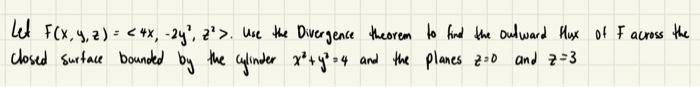 Let F(x, y, z) = <4x, -2y², z²>. Use the Divergence theorem to find the outward flux of F across the
closed surface bounded by the cylinder x²+y²=4 and the planes z=0 and z=3